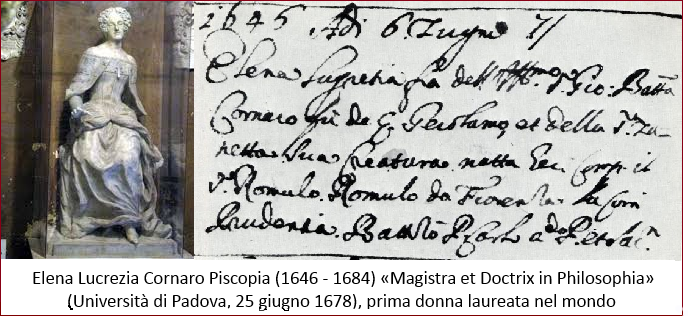 1646 Adi 6 Zugno
Elena Lugretia fia dell' Gio: Batta
Cornaro fu de G. Gerolamo, et della Za:
netta sua Creatura natta il
Romulo Romulo da Fiorenza la Com
Prudentia. Battizò P. Carlo
Elena Lucrezia Cornaro Piscopia (1646 - 1684) «Magistra et Doctrix in Philosophia»
(Università di Padova, 25 giugno 1678), prima donna laureata nel mondo